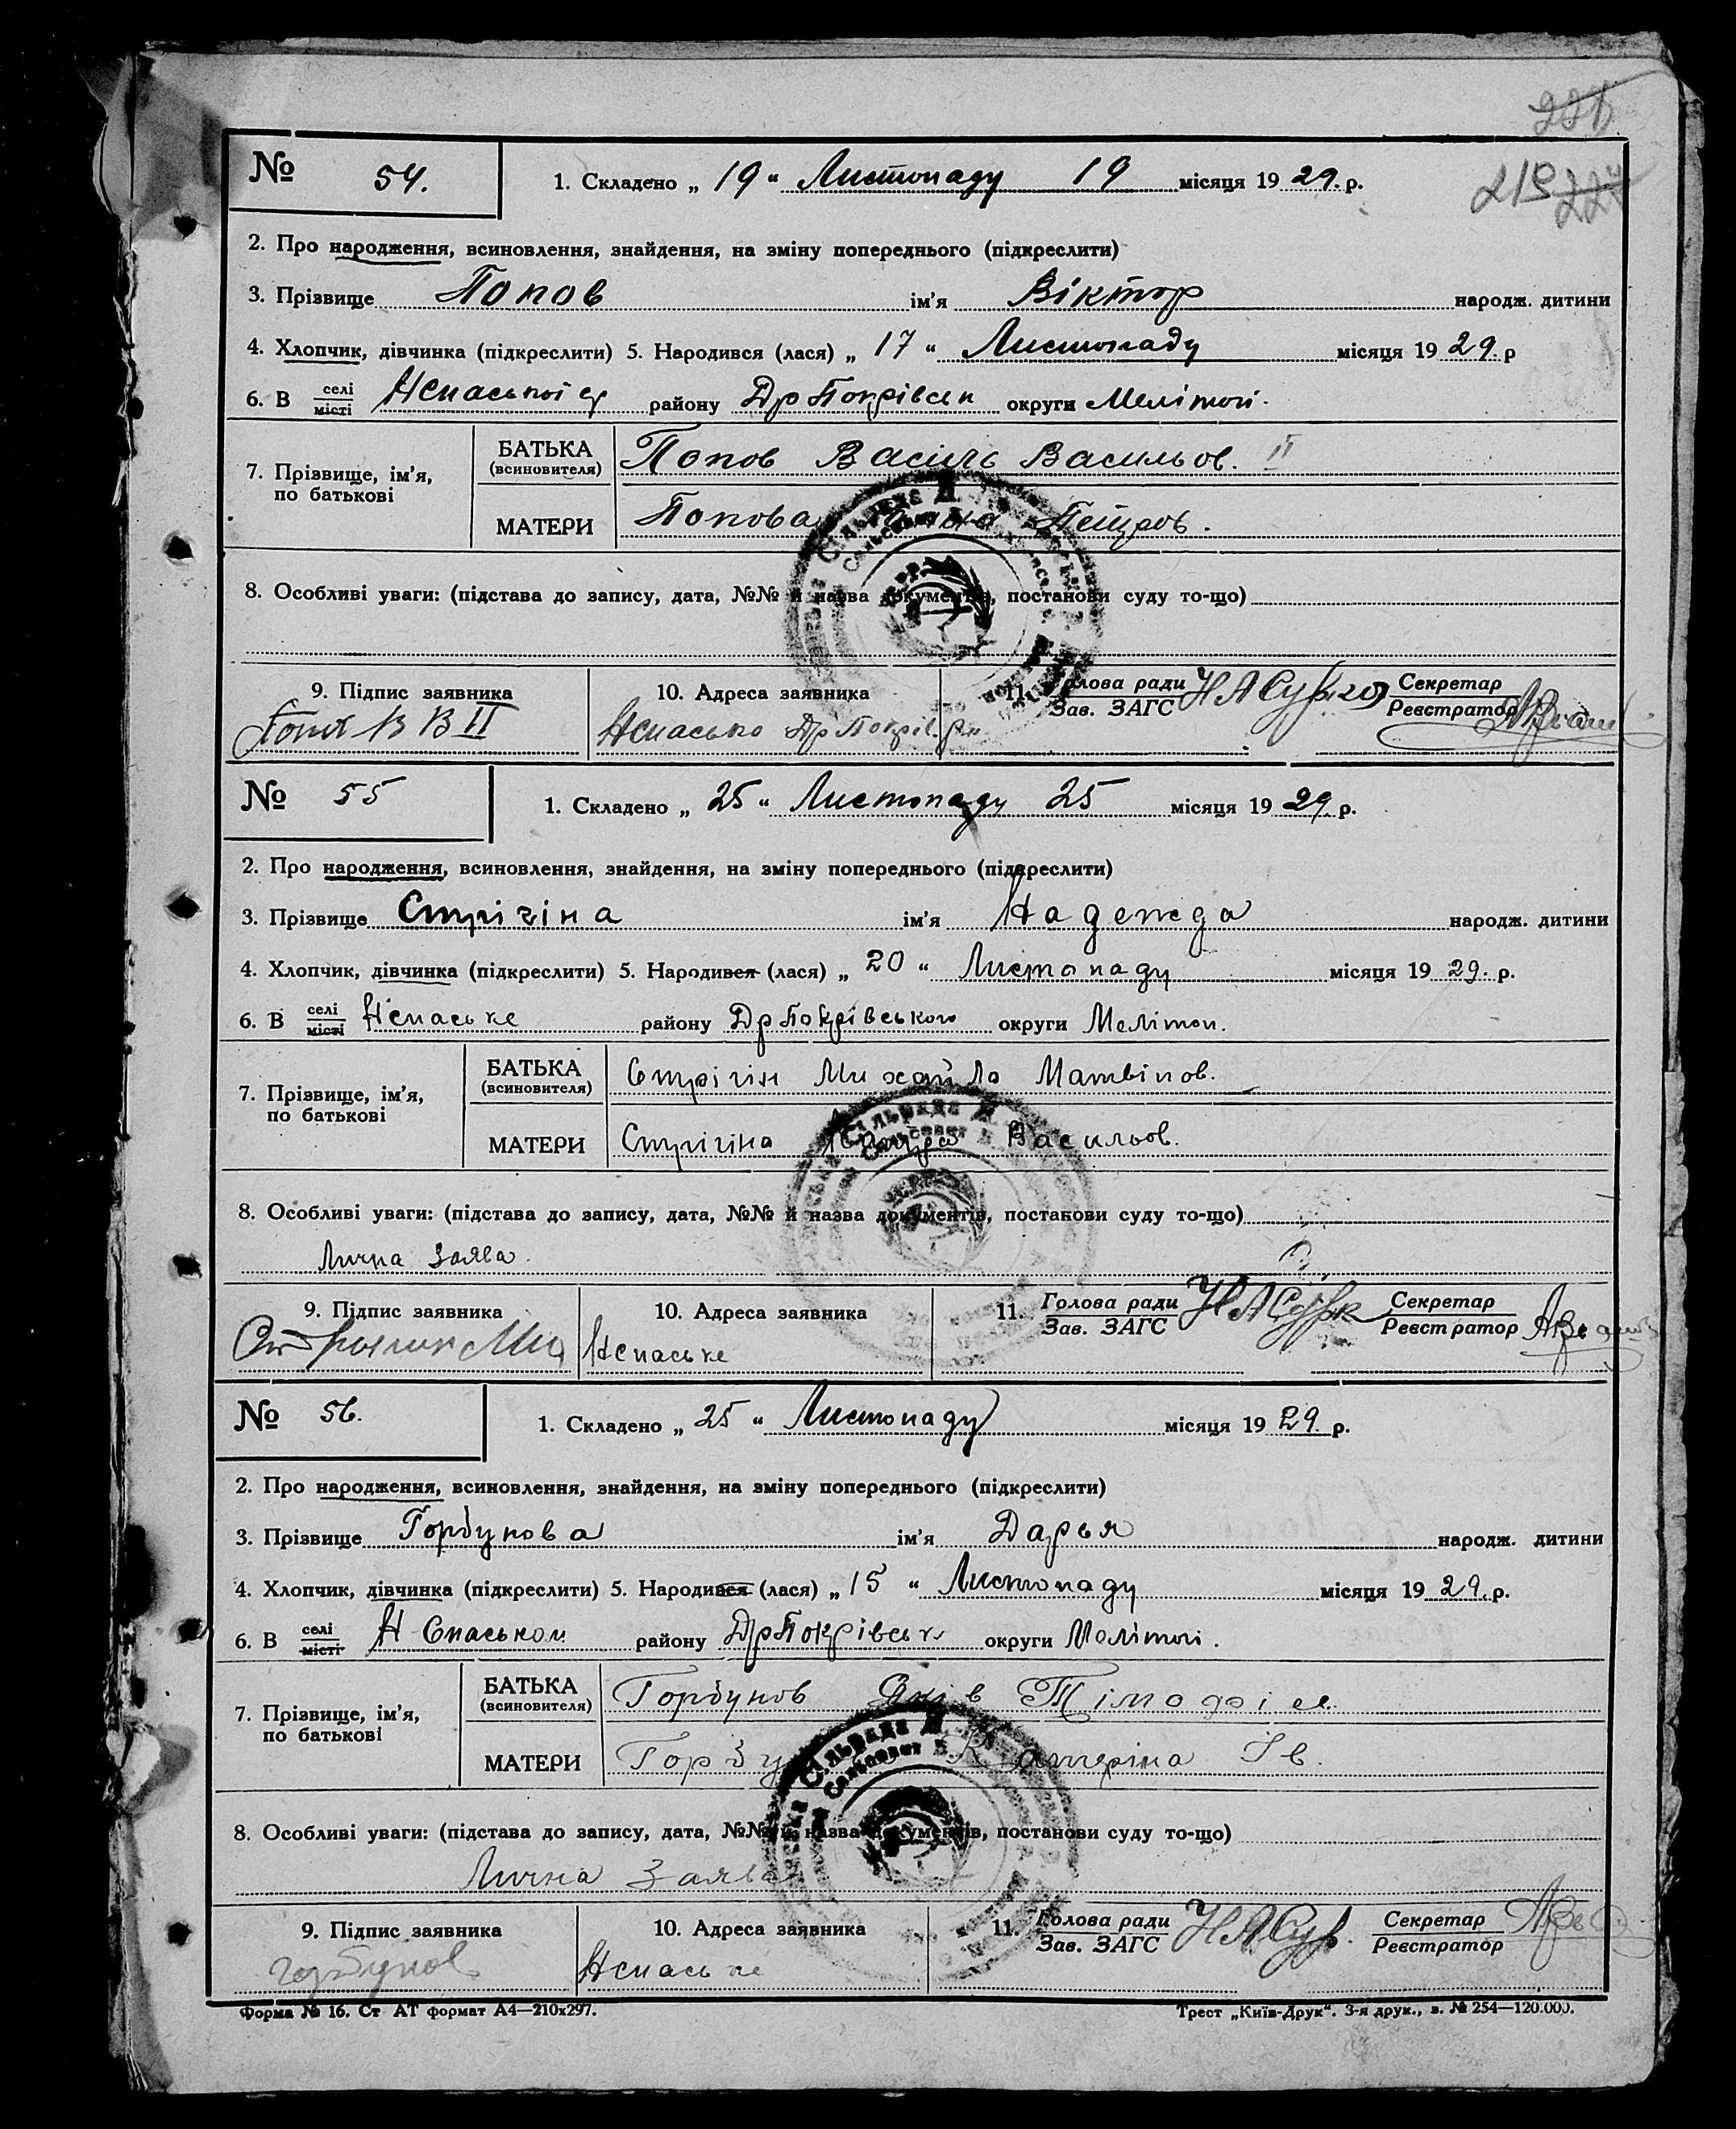 219
№ 54. 1. Складено „ 19 “ Листопаду 19 місяця 19 29. р.
2. Про народження, всиновлення, знайдення, на зміну попереднього (підкреслити)
3. Прізвище Попов ім'я Віктор народж. дитини
4. Хлопчик, дівчинка (підкреслити) 5. Народився (лася) „ 17 “ Листопаду місяця 19 29. р
6. В селі/місті району ДрПокрівськ округи Мелітоп.
7. Прізвище, ім'я, по батькові
БАТЬКА (всиновителя) Попов Василь Васильов. II
МАТЕРИ Попова Петров.
8. Особливі уваги: (підстава до запису, дата, №№ й назва документів, постанови суду то-що)
9. Підпис заявника 10. Адреса заявника 11. Голова ради/Зав. ЗАГС Секретар/Реєстратор
В В II Нспасько ДрПокрів. рн
№ 55 1. Складено „ 25 “ Листопаду 25 місяця 19 29. р.
2. Про народження, всиновлення, знайдення, на зміну попереднього (підкреслити)
3. Прізвище Стрігіна ім'я Надежда народж. дитини
4. Хлопчик, дівчинка (підкреслити) 5. Народився (лася) „ 20 “ Листопаду місяця 19 29. р.
6. В селі/місті Нспаське району ДрПокрівського округи Мелітоп.
7. Прізвище, ім'я, по батькові
БАТЬКА (всиновителя) Стрігін Михайло Матвіков.
МАТЕРИ Стрігіна Васильов.
8. Особливі уваги: (підстава до запису, дата, №№ й назва документів, постанови суду то-що)
Лична заява.
9. Підпис заявника 10. Адреса заявника 11. Голова ради/Зав. ЗАГС Секретар/Реєстратор
Нспаське
№ 56. 1. Складено „ 25 “ Листопаду місяця 19 29. р.
2. Про народження, всиновлення, знайдення, на зміну попереднього (підкреслити)
3. Прізвище Горбунова ім'я Дарья народж. дитини
4. Хлопчик, дівчинка (підкреслити) 5. Народився (лася) „ 15 “ Листопаду місяця 19 29. р.
6. В селі/місті Н-Спаськом району ДрПокрівськ округи Мелітоп.
7. Прізвище, ім'я, по батькові
БАТЬКА (всиновителя) Горбунов Яків Тімофієв
МАТЕРИ Катеріна Ів.
8. Особливі уваги: (підстава до запису, дата, №№ й назва документів, постанови суду то-що)
Лична Заява
9. Підпис заявника 10. Адреса заявника 11. Голова ради/Зав. ЗАГС Секретар/Реєстратор
горбунов Нспаське
Форма № 16. Ст АТ формат А4—210х297. Трест „Київ-Друк“. 3-я друк., з. № 254—120.000.